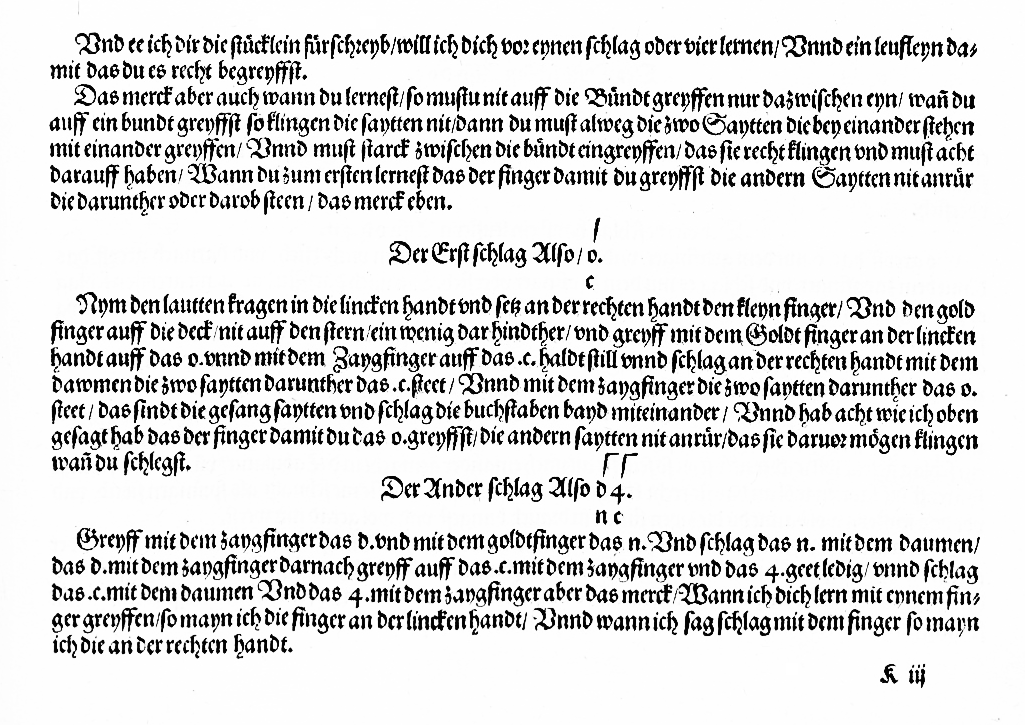 Vnd ee ich dir die stücklein fürschreyb/will ich dich vor eynen schlag oder vier lernen/ Vnnd ein leufleyn da⸗
mit das du es recht begreyffst.
Das merck aber auch wann du lernest/so mustu nit auff die Bündt greyffen nur dazwischen eyn/ wañ du
auff ein bundt greyffst so klingen die saytten nit/dann du must alweg die zwo Saytten die bey einander stehen
mit einander greyffen/ Vnnd must starck zwischen die bündt eingreyffen/ das sie recht klingen vnd must acht
darauff haben/ Wann du zum ersten lernest das der finger damit du greyffst die andern Saytten nit anrür
die darunther oder darob steen / das merck eben.
Der Erst schlag Also/ o.
c
Nym den lautten kragen in die lincken handt vnd setz an der rechten handt den kleyn finger/ Vnd den gold
finger auff die deck/nit auff den stern/ein wenig dar hindther/ vnd greyff mit dem Goldt finger an der lincken
handt auff das o.vnnd mit dem Zaygfinger auff das .c. haldt still vnnd schlag an der rechten handt mit dem
dawmen die zwo saytten darunther das .c.steet/ Vnnd mit dem zaygfinger die zwo saytten darunther das o.
steet / das sindt die gesang saytten vnd schlag die buchstaben bayd miteinander/ Vnnd hab acht wie ich oben
gesagt hab das der finger damit du das o.greyffst/die andern saytten nit anrür/das sie daruor mögen klingen
wañ du schlegst.
Der Ander schlag Also d 4.
n c
Greyff mit dem zaygfinger das d.vnd mit dem goldtfinger das n. Vnd schlag das n. mit dem daumen/
das d.mit dem zaygfinger darnach greyff auff das .c.mit dem zaygfinger vnd das 4.geet ledig/ vnnd schlag
das .c.mit dem daumen Vnd das 4.mit dem zaygfinger aber das merck/Wann ich dich lern mit eynem fin⸗
ger greyffen/so mayn ich die finger an der lincken handt/ Vnnd wann ich sag schlag mit dem finger so mayn
ich die an der rechten handt.
K iij